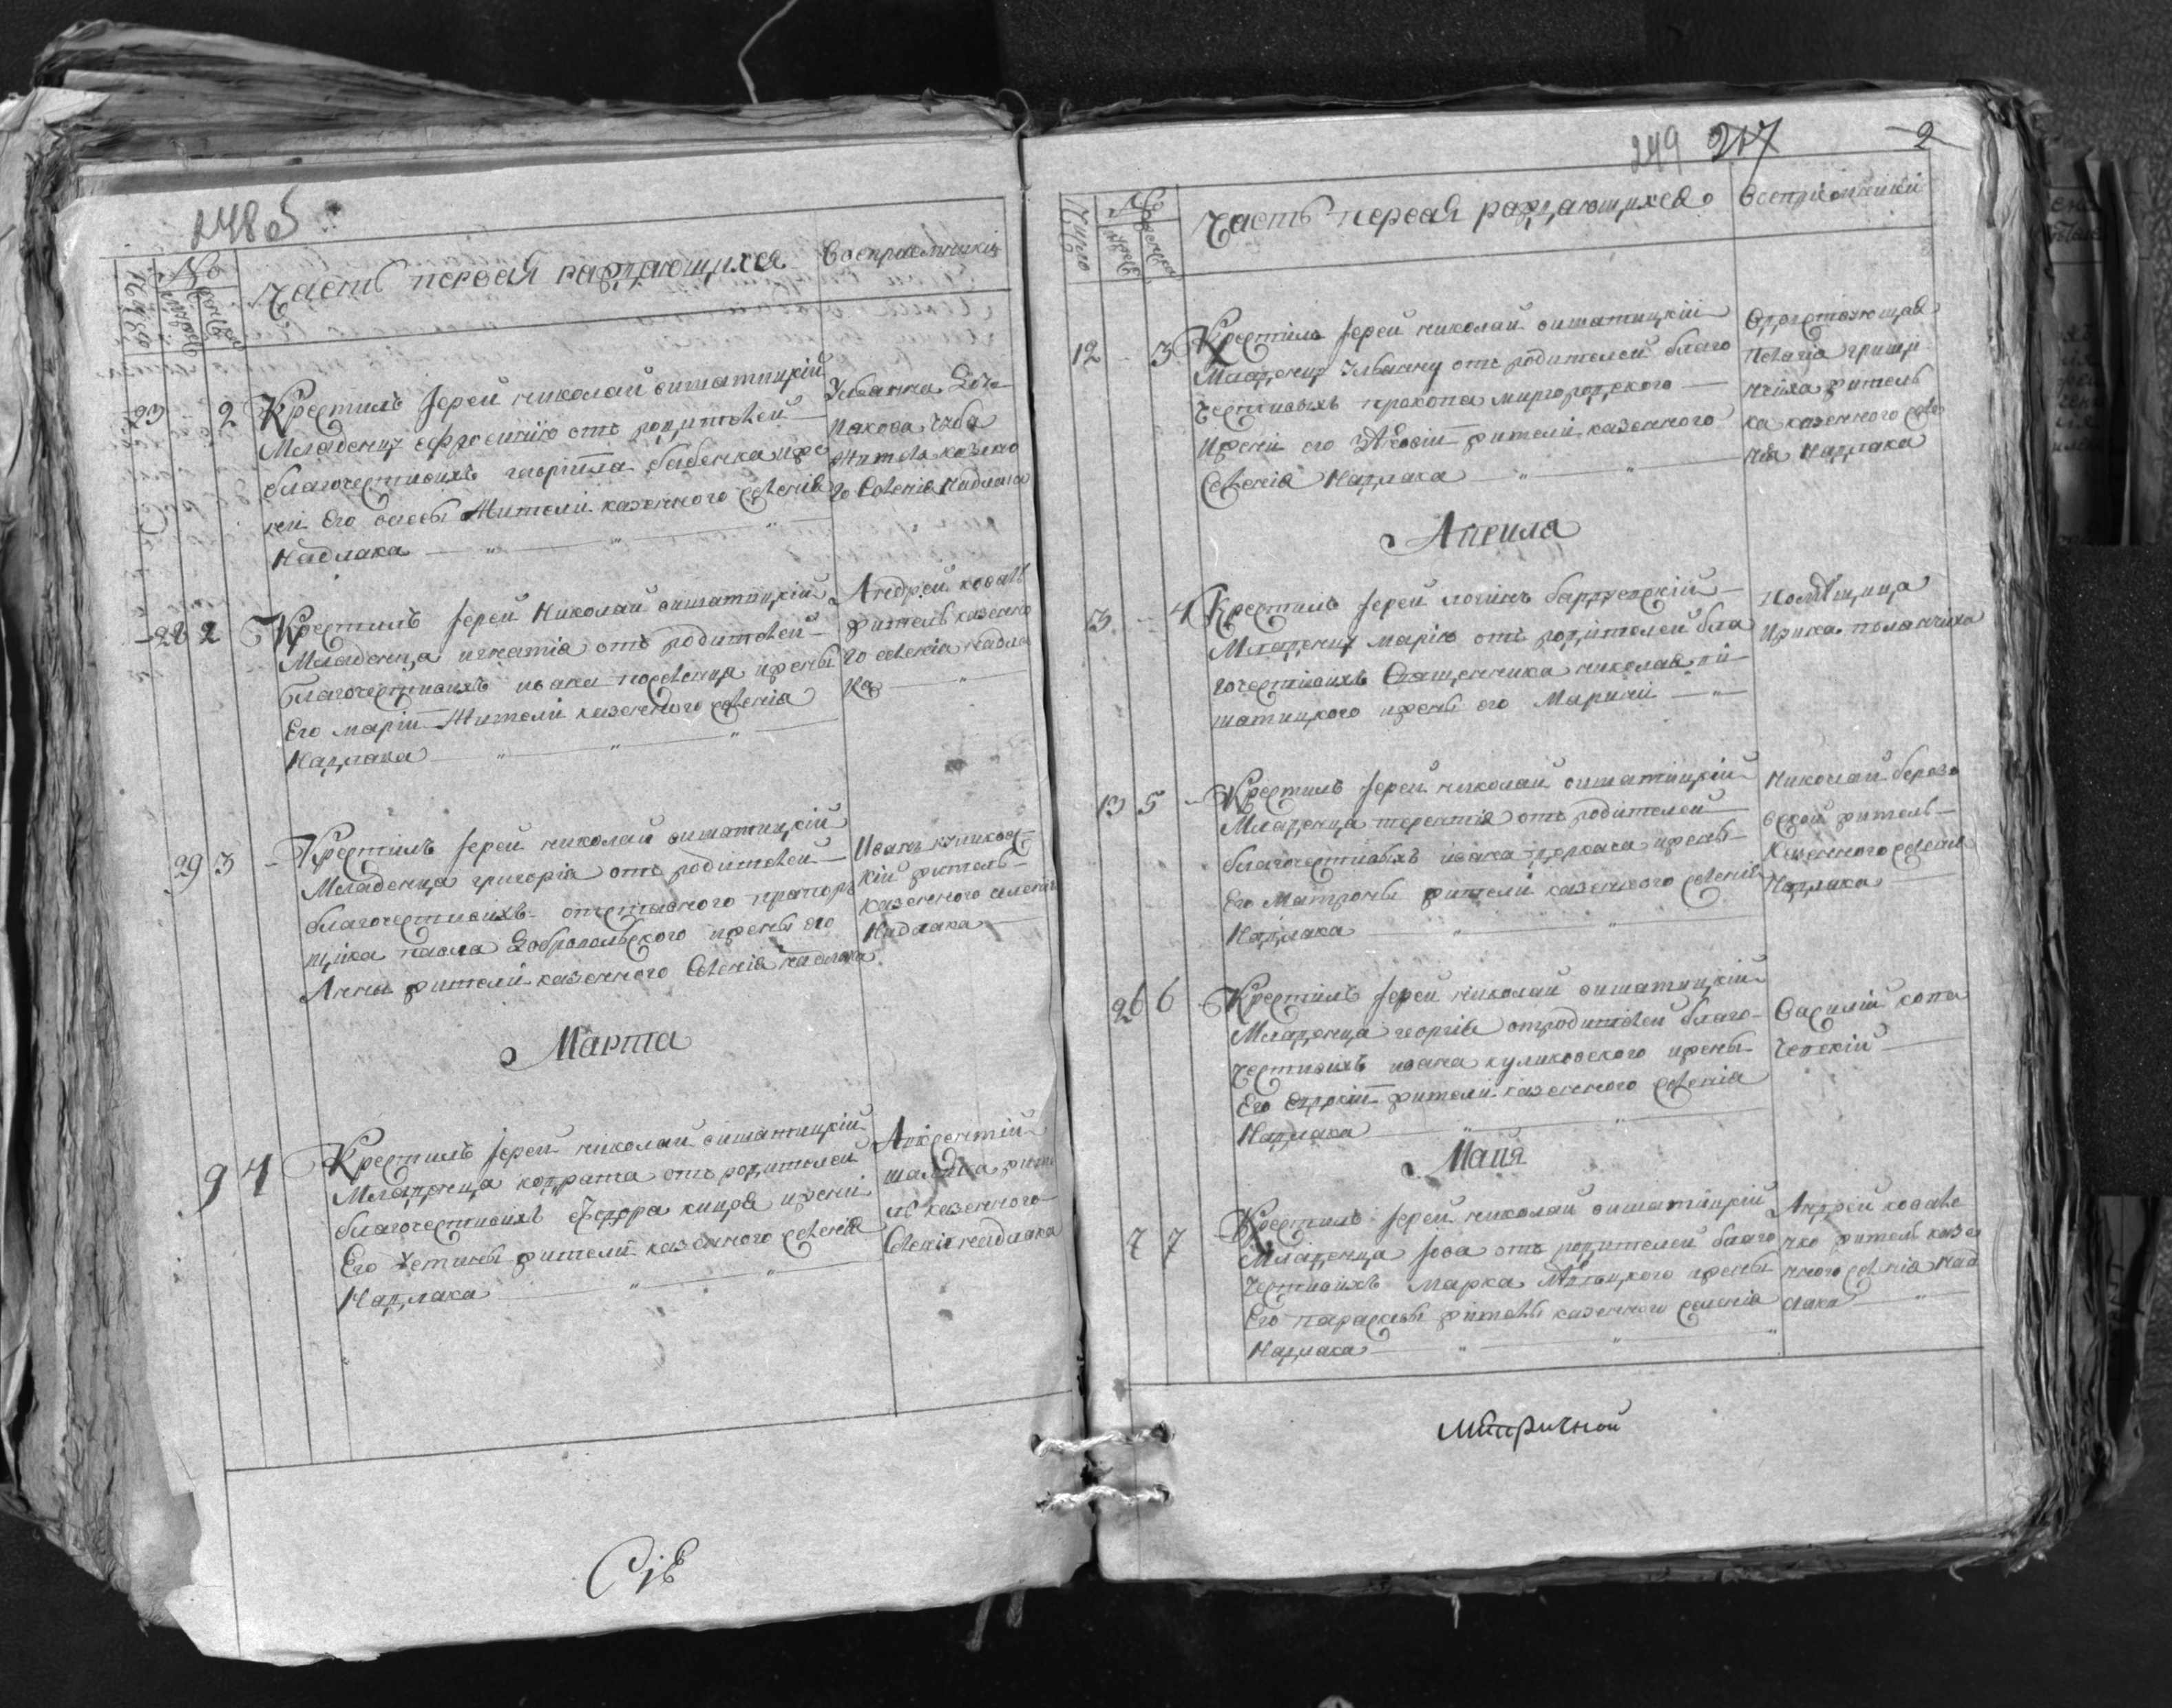 248 об
Число
№
Мужеска
Женска
Часть первая раждающихся
Восприемники
23 2 Крестилъ Іерей николай вишатицкій
Младенцу ефросинию отъ родителей
благочестивихъ гавріила бабенка и же
ни Его Жители казенного селенія
Надлака
Улянна
Иакова чуба
Жителя казенно
го Селенія Надлака
28 2 Крестилъ Іерей Николай вишатицкій
Младенца игнатія отъ родителей
благочестивихъ ивана поселенца и жены
Его маріи Жители казенного селенія
Надлака
Андрей коваль
житель казенно
го селенія надла
ка
29 3 Крестилъ Іерей николай вишатицкій
Младенца григорія отъ родителей
благочестивихъ отставного прапор
щика павла Добровольского и жены его
Анны жители казенного Селенія надлака
Иванъ куликовс
кій житель
казенного селенія
Надлака
Марта
9 4 Крестилъ Іерей николай вишатицкій
Младенца кодрата отъ родителей
благочестивихъ федора и жени
Его Устины жители казенного селенія
Надлака
житe
ль казенного
Селенія надлака
249 217 2
Число
№
Мужеска
Женска
Часть первая раждающихся
Восприемники
12 3 Крестилъ Іерей николай вишатицкій
Младенцу Ульянну отъ родителей благо
честивыхъ прокопа миргородского
и жени его жители казенного
Селенія Надлака
Пелагія грици
чиха житель
ка казенного селе
нія Надлака
Априля
3 4 Крестилъ Іерей логинъ
Младенцу марію отъ родителей бла
гочестивихъ Священника николая ви
шатицкого и жены его Марини
Помѣщица
Ирина
13 5 Крестилъ Іерей николай вишатицкій
Младенца терентія отъ родителей
благочестивыхъ ивана деркача и жены
Его Матроны жители казенного селенія
Надлака
Николай березо
вской житель
казенного селенія
Надлака
26 6 Крестилъ Іерей николай вишатицкій
Младенца георгія от родителей благо
честивихъ ивана куликовского и жены
Его Евдокіи жители казенного селенія
Надлака
Василій копа
чевскій
Маія
7 7 Крестилъ Іерей николай вишатицкій
Младенца Іова отъ родителей благо
честивихъ Марка и жены
Его параскевы жители казенного селенія
Надлака
Андрей ковале
нко житель казе
нного селенія Над
лака